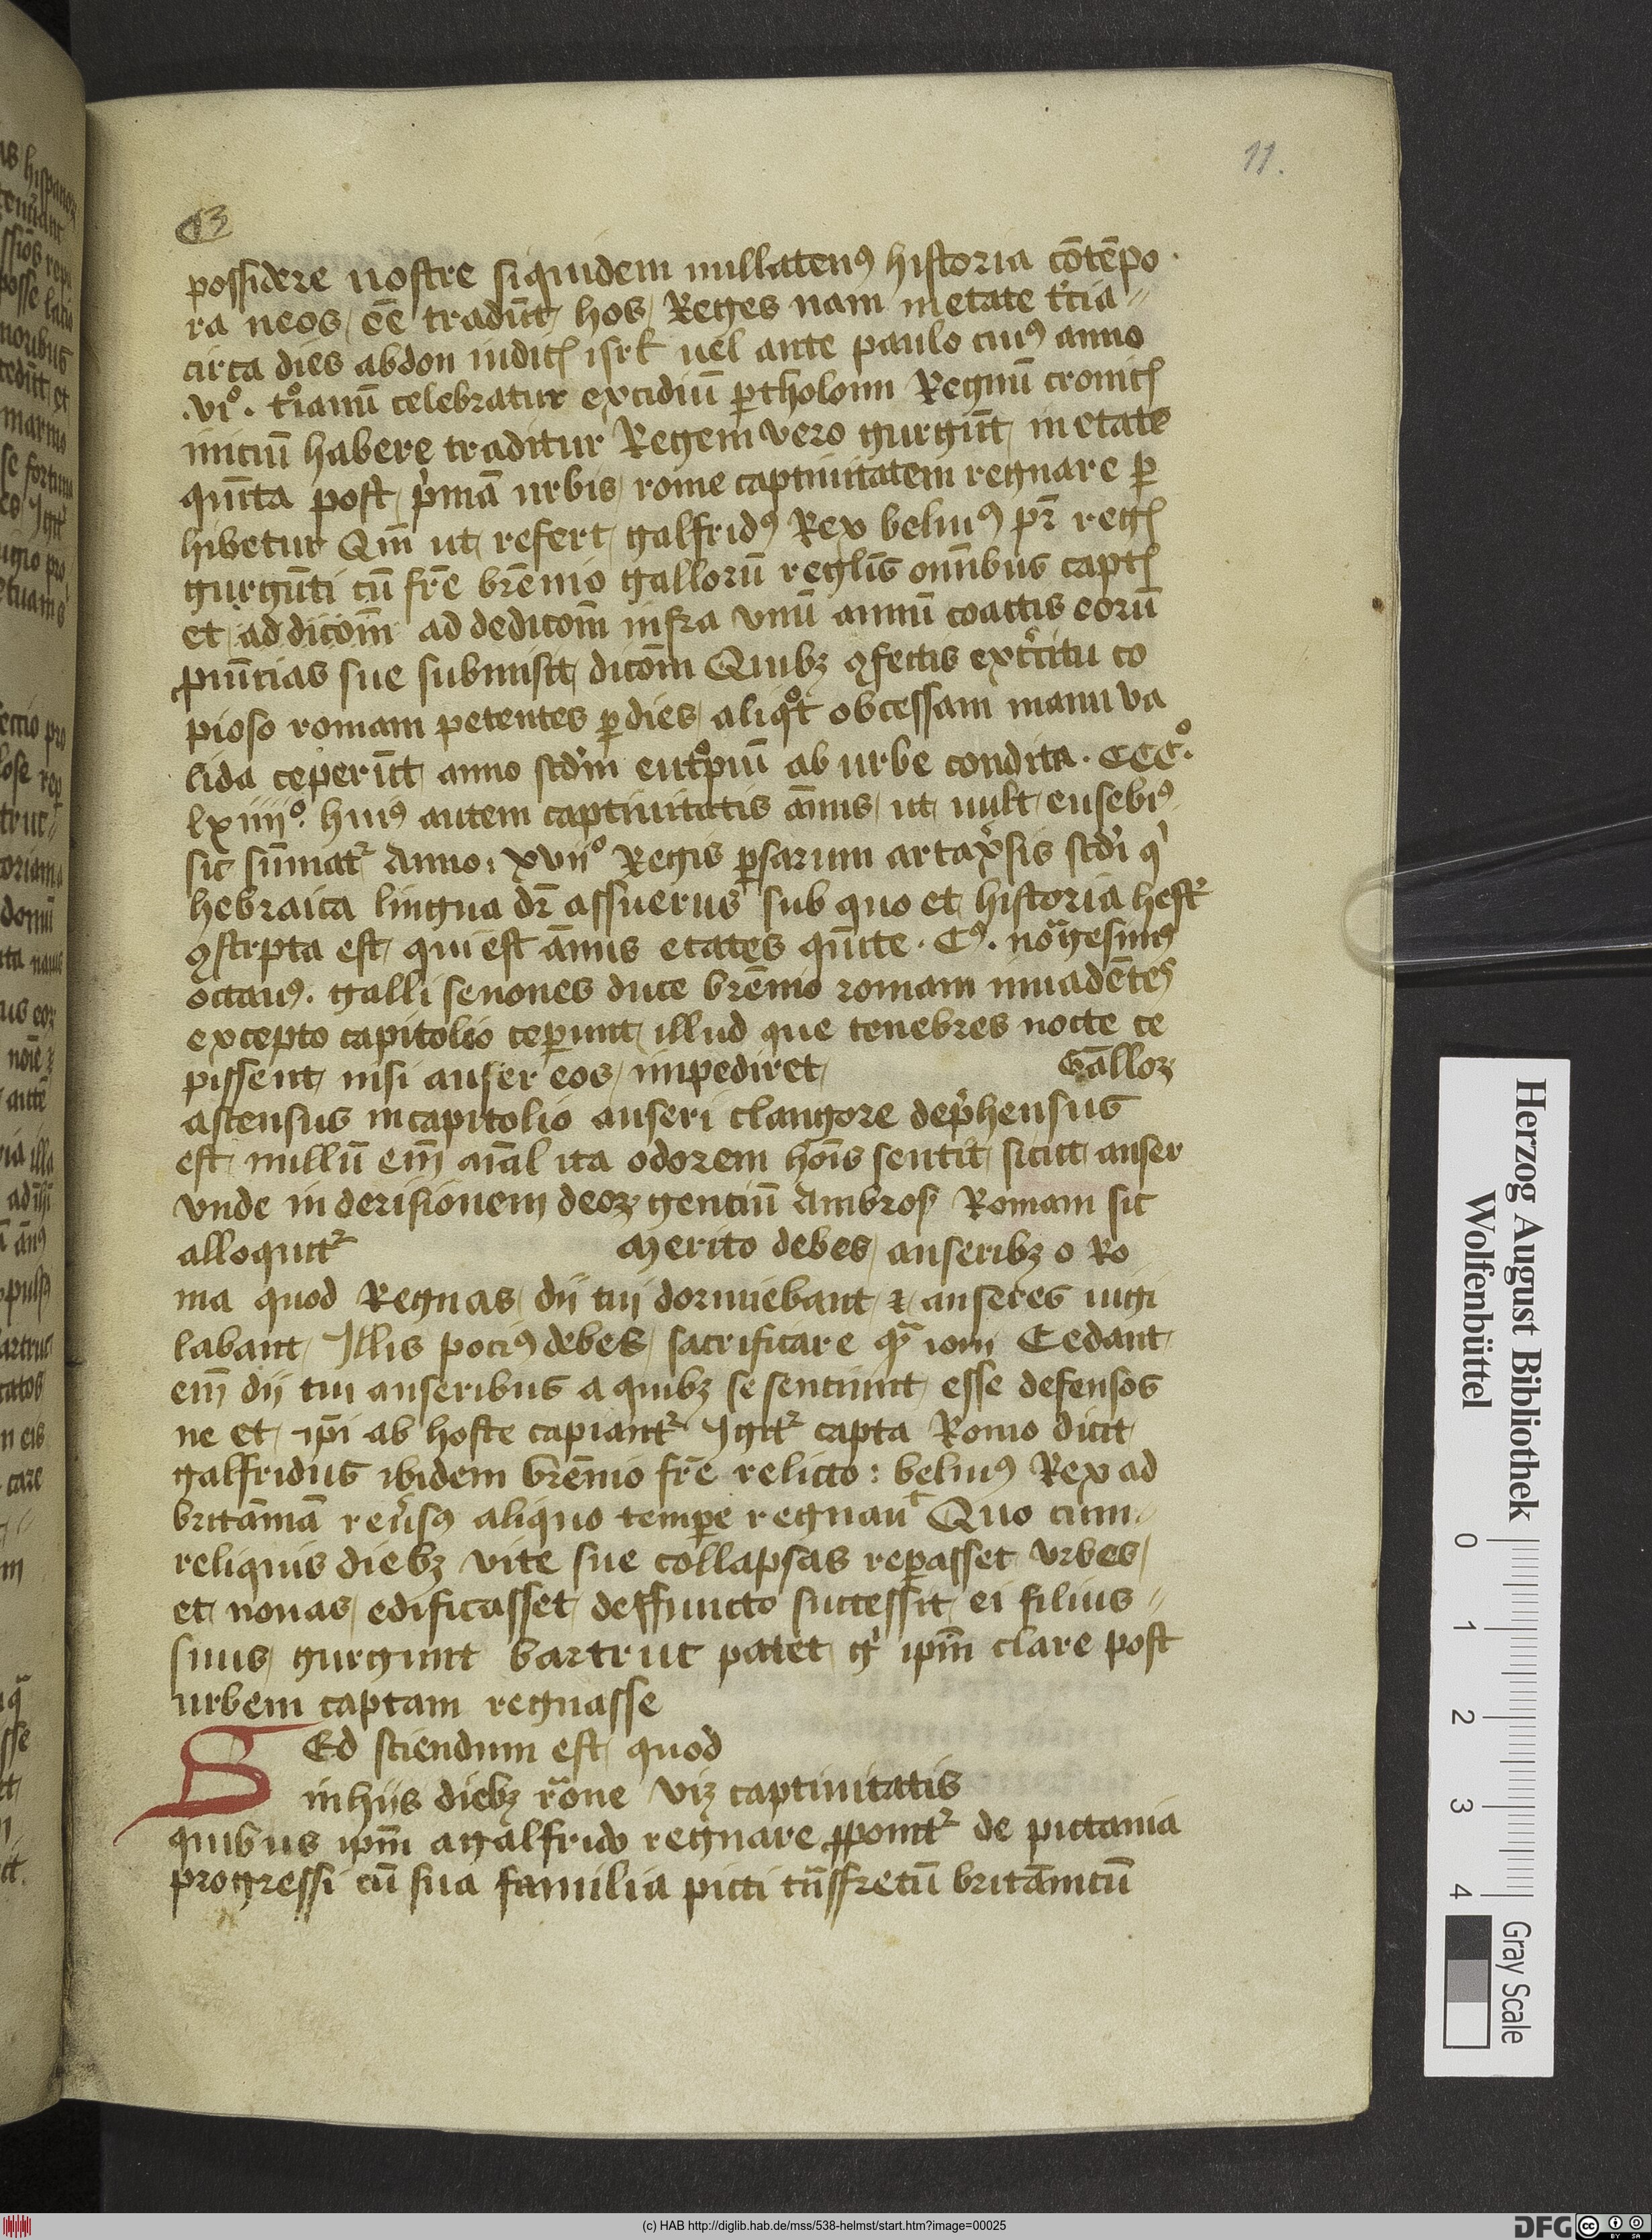 11.
13
possidere nostre siquidem nullatenꝰ historia cōtēpo
ra neos ēē tradūt hos Reges nam in etate t͛cia
circa dies abdon iudicꝭ isrł uel ante paulo cuiꝰ anno
.viº. tͦianū celebratur excidiū ꝑtholom Regnū cronicꝭ
iniciū habere traditur Regem vero gurgūt in etate
quīta post p͛mā urbis rome captiuitatem regnare ꝑ
hibetur Qm̄ ut refert galfridꝰ Rex beliuꝰ pr̄ regꝭ
gurgūti cū fr̄e brēnio gallorū reglīs om̄ibus captꝭ
et ad dicōm̄ ad dedicōm̄ infra vnū annū coactis eorū
ꝓuīcias sue submisit dicōm Quibꝫ ꝯfectis ex͛citu co
pioso romam petentes ꝑ dies aliqͦt obcessam manu va
lida ceperūt anno scd͛m eutͦpiū ab urbe condita . CCCº.
lxiiiiº. huiꝰ autem captiuitatis ānus ut uult eusebiꝰ
sic sūmatᷣ Anno: xviiº Regis ꝑsarum artax͛sis scd͛i qͥ
hebraica lingua dr̄ assuerus sub quo et historia hest͛
ꝯscrpta est qui est ānus etates quīte . Cꝰ. nōgesimꝰ
octauꝰ. galli senones duce brēnio romam inuadētes
excepto capitolio ceꝑunt illud que tenebres nocte ce
pissent nisi anser eos impediret
Gālloꝝ
ascensus in capitolio anseri clangore dep͛hensus
est nullū em̄ aīal ita odorem hoīs sentit sicut anser
vnde in derisionem deoꝝ gentiū Ambrosꝭ Romam sic
alloquitᷣ Merito debes anseribꝫ o Ro
ma quod Regnas dij tuij dormiebant ⁊ anseres uigi
labant Illis pociꝰ debes sacrificare qᷓ ioui Cedant
em̄ dij tui anseribus a quibꝫ se senciunt esse defensos
ne et ip̄i ab hoste capiantᷣ Igitᷣ capta Romo dicit
galfridus ibidem brēnio fr̄e relicto : beliuꝰ Rex ad
britāniā reu͛sꝰ aliquo tempe regnauͭ Quo cum
reliquis diebꝫ vite sue collapsas reꝑasset vrbes
et nouas edificasset deffuncto successit ei filius
suus gurgunt bartruc patet gͥ ip̄m clare post
urbem captam regnasse
SEd sciendum est quod
in hijs diebꝫ rᷓone viꝫ captiuitatis
quibus ip̄m a galfrido regnare ꝓponitᷣ de pictania
progressi cū sua familia picti tᷓsfretū britānicū
Herzog August Bibliothek
Wolfenbüttel
0 1 2 3 4
Gray Scale
(c) HAB http://diglib.hab.de/mss/538-helmst/start.htm?image=00025
DFG